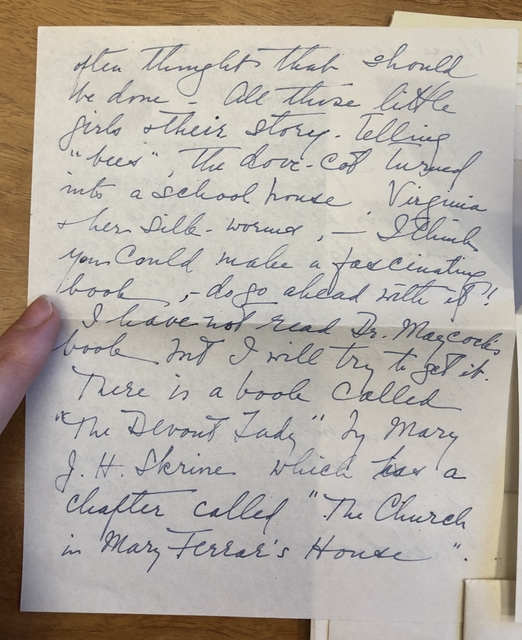 often thought that should
be done - All those little
girls & their story-telling
"bees", the dove-cot turned
into a school house, Virginia
& her silk-worms, - I think
you could make a fascinating
book, - do go ahead with it!
I have not read Dr. Maycock's
book but I will try to get it.
There is a book called
"The Devout Lady" by Mary
J. H. Skrine which has a
chapter called "The Church
in Mary Ferrar's House".